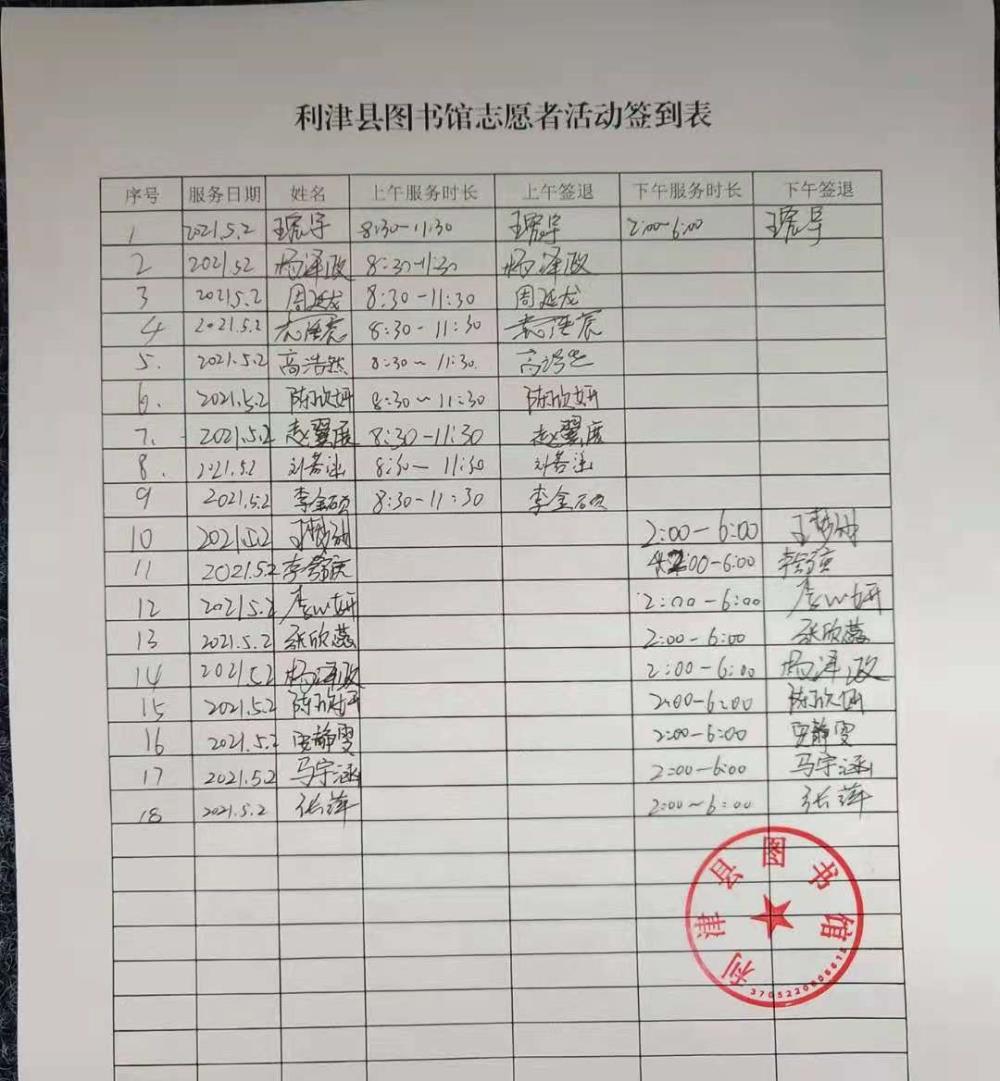 利津县图书馆志愿者活动签到表
序号 服务日期 姓名 上午服务时长 上午签退 下午服务时长 下午签退
1 2021.5.2 8:30-11:30 2:00-6:00
2 2021.5.2 杨泽政 8:30-11:30 杨泽政
3 2021.5.2 周延龙 8:30-11:30 周延龙
4 2021.5.2 8:30-11:30
5. 2021.5.2 高浩然 8:30~11:30.
6. 2021.5.2 陈欣妍 8:30~11:30 陈欣妍
7. 2021.5.2 赵翼展 8:30-11:30 赵翼展
8. 2021.5.2 8:30-11:30
9 2021.5.2 李金硕 8:30-11:30 李金硕
10 2021.5.2 2:00-6:00
11 2021.5.2 2:00-6:00
12 2021.5.2 2:00-6:00
13 2021.5.2 张欣蕊 2:00-6:00 张欣蕊
14 2021.5.2 杨泽政 2:00-6:00 杨泽政
15 2021.5.2 陈欣妍 2:00-6:00 陈欣妍
16 2021.5.2 2:00-6:00
17 2021.5.2 马宇涵 2:00-6:00 马宇涵
18 2021.5.2 张萍 2:00~6:00 张萍
利津县图书馆